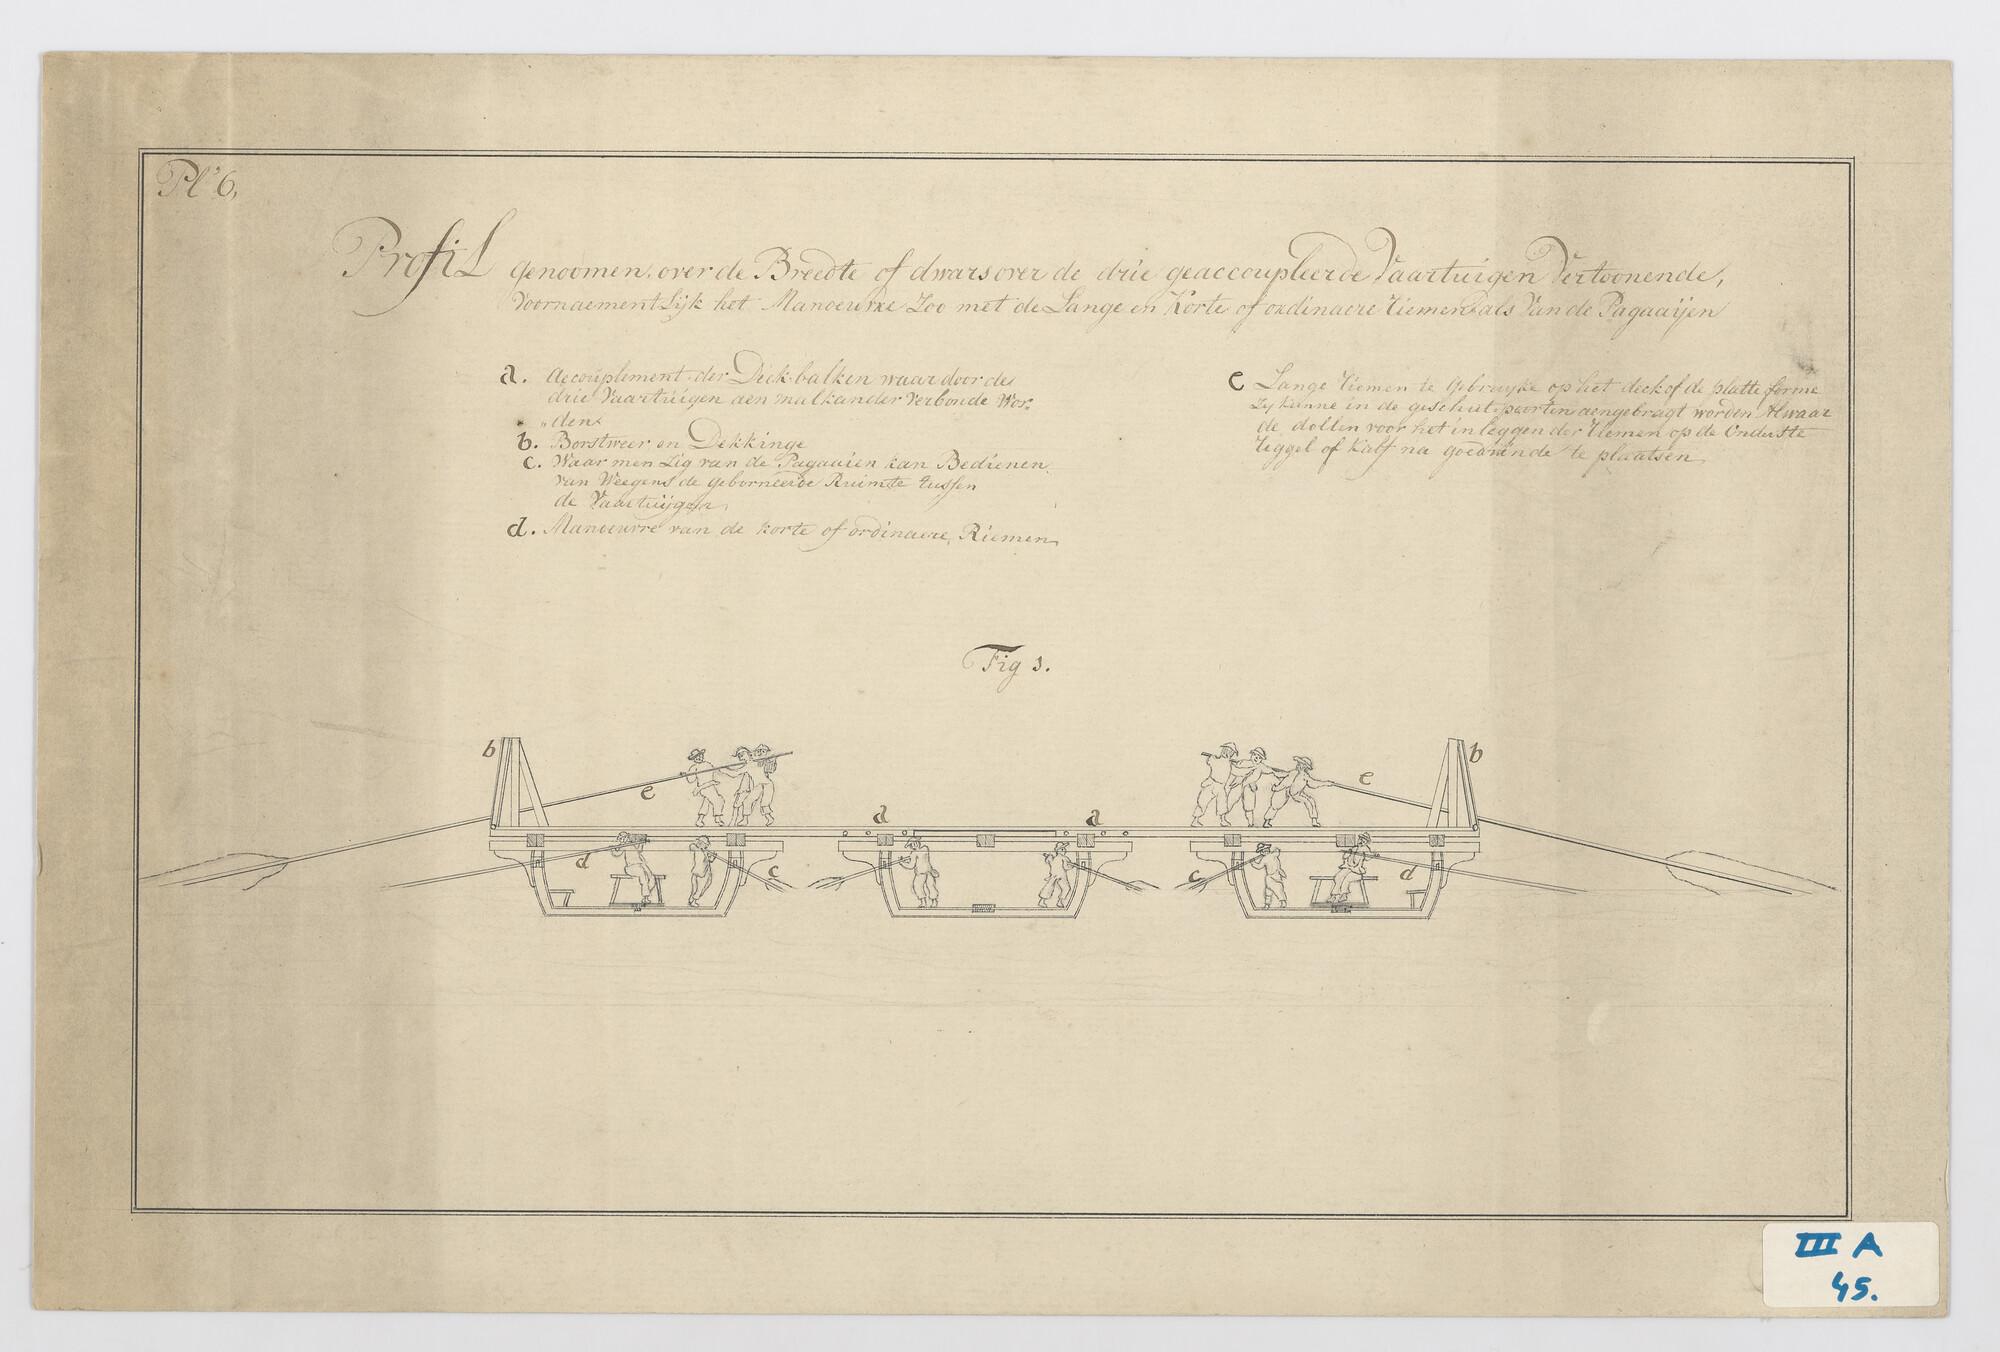 Pl: 6,
Profil genoomen over de Breedte of dwars over de drie geaccoupleerde Vaartuigen Vertoonende,
Voornaementlijk het Manoeuvre Zoo met de Lange en Korte of ordinaere Riemen als Van de Pagaaijen
a. Accouplement der Dek-balken waar door de
drie Vaartuigen aen malkander verbonde Wor-
"den
b. Borstweer en Dekkinge
c. Waar men Zig van de Pagaaien kan Bedienen
van Weegens de geborneerde Ruimte tussen
de Vaartuijgen
d. Manoeuvre van de korte of ordinaere Riemen
e Lange Riemen te gebruyke op het deck of de platte forme
Zy kunne in de geschut-poorten aengebragt worden Alwaar
de dollen voor het inleggen der Riemen op de Onderste
Riggel of Kalf na goedvinde te plaatsen
Fig 1.
b
e
a
a
e
b
d
c
c
d
III A
45.